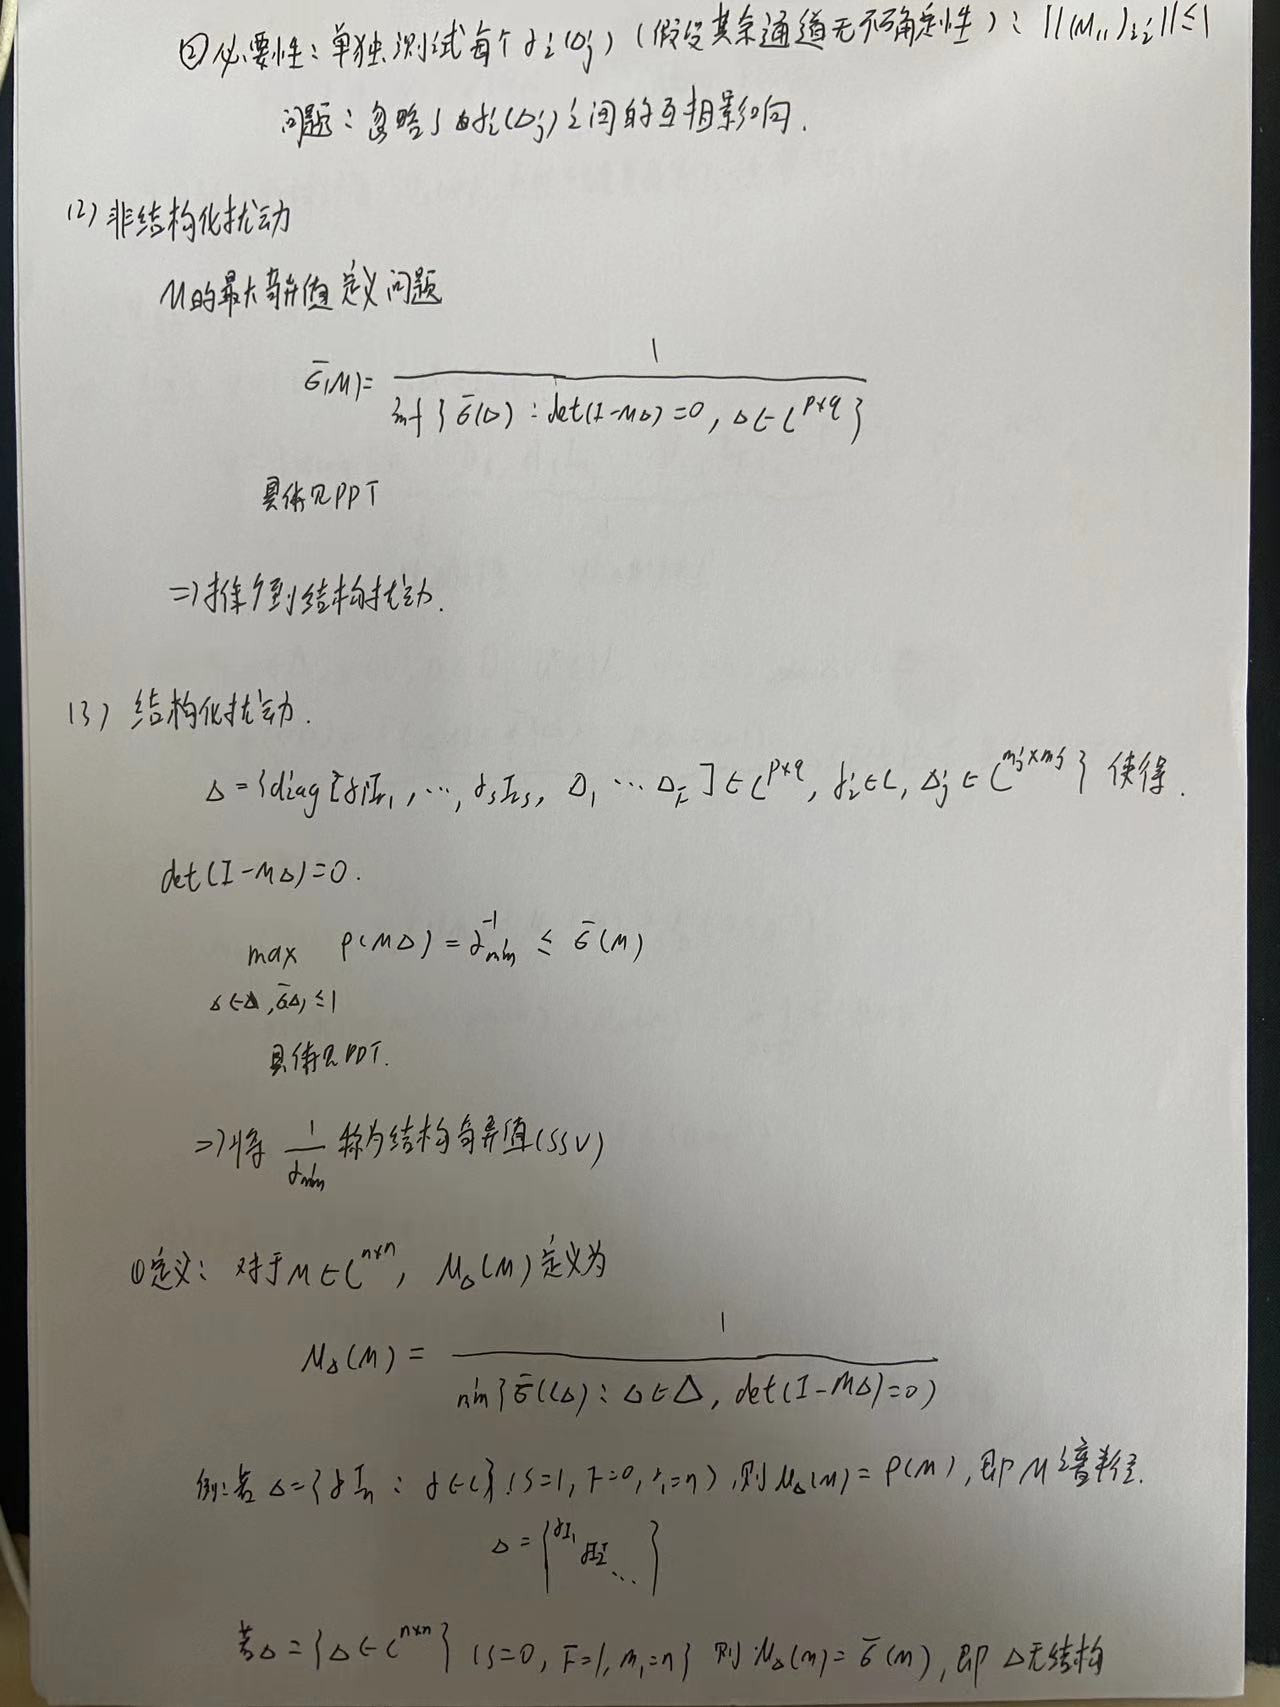 ②必要性：单独测试每个δi(Δj)（假设其余通道无不确定性）：||(M₁₁)ii||≤1
问题：忽略了由δi(Δj)之间的互相影响.
(2) 非结构化扰动
M的最大奇异值定义问题
σ̄(M)= 1 / inf{σ̄(Δ) : det(I-MΔ)=0, Δ∈C^{p×q}}
具体见PPT
=>推广到结构扰动.
(3) 结构化扰动.
Δ={diag[δ₁I_{r₁}, …, δ_sI_{r_s}, Δ₁ … Δ_F]∈C^{p×q}, δi∈C, Δj∈C^{mj×mj}} 使得.
det(I-MΔ)=0.
max ρ(MΔ) = α_{min}^{-1} ≤ σ̄(M)
Δ∈Δ, σ̄(Δ)≤1
具体见PPT.
=>将 1/α_{min} 称为结构奇异值(SSV)
①定义：对于M∈C^{n×n}, μ_Δ(M)定义为
μ_Δ(M) = 1 / min{σ̄(Δ) : Δ∈Δ, det(I-MΔ)=0}
例：若 Δ={δI_n : δ∈C} (S=1, F=0, r₁=n), 则 μ_Δ(M)=ρ(M), 即 M 谱半径.
Δ={δI₁ δI₂ ⋱}
若Δ={Δ∈C^{n×n}} (S=0, F=1, m₁=n} 则 μ_Δ(M)=σ̄(M), 即 Δ无结构